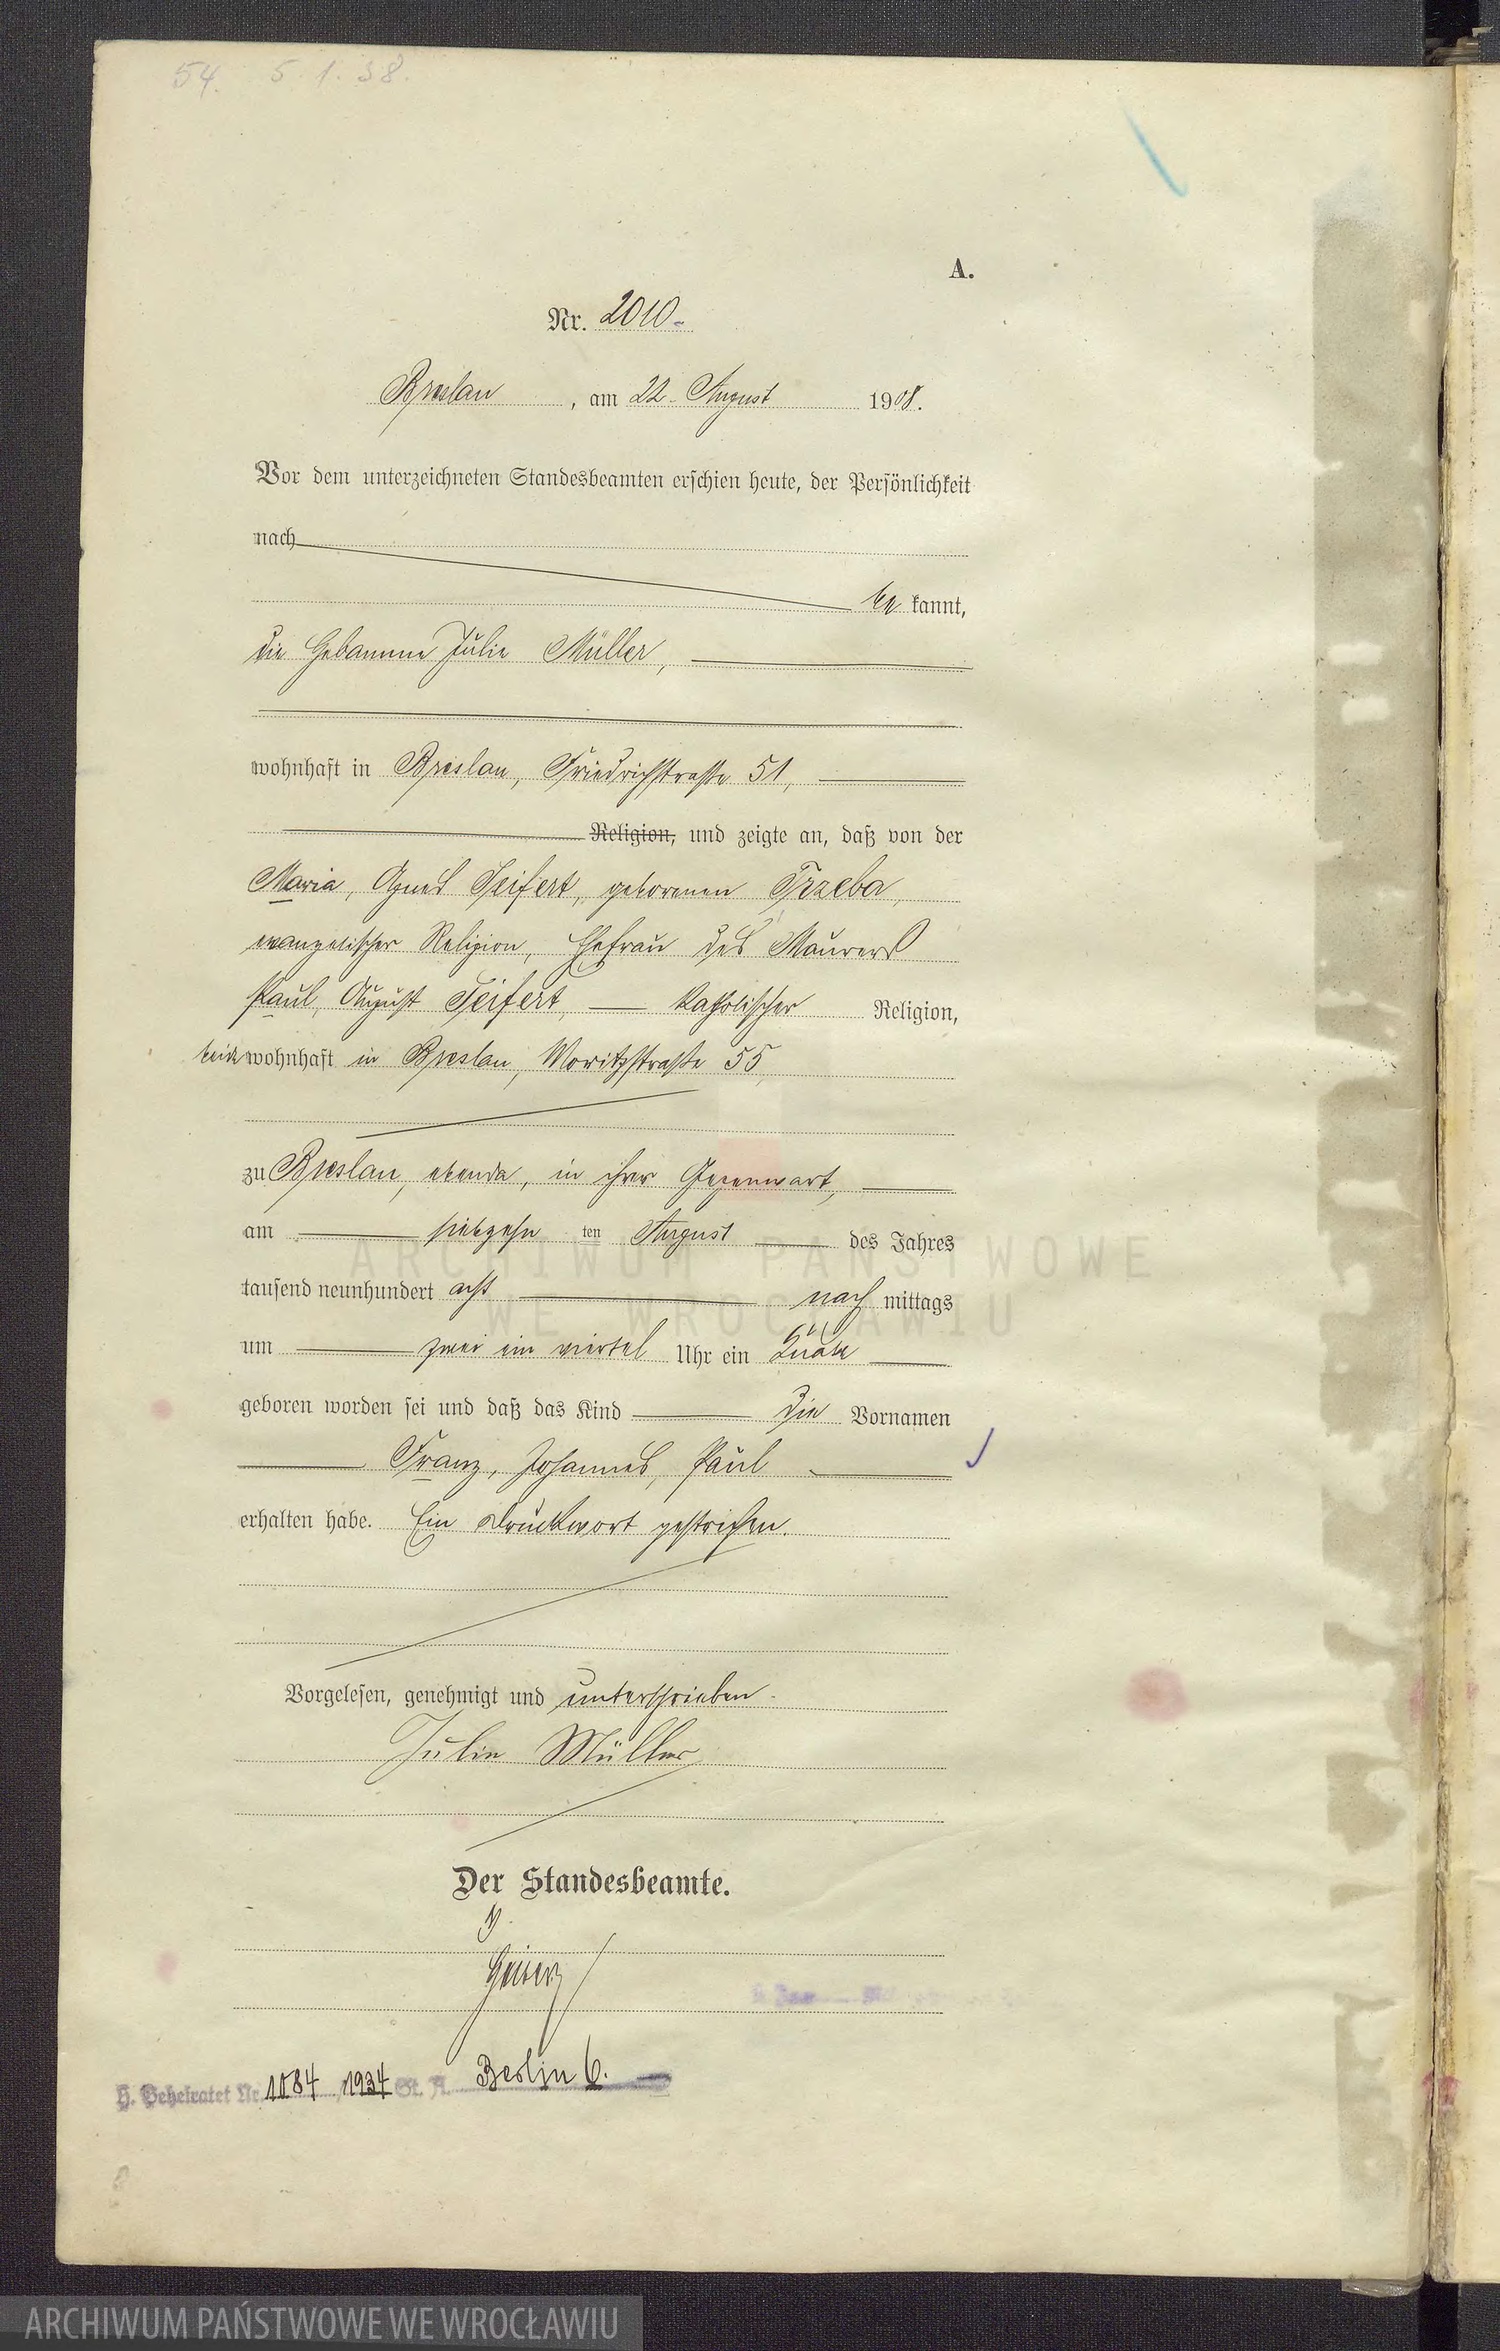 54. 5. 1. 38.
A.
Nr. 2010.
Breslau, am 22. August 1908.
Vor dem unterzeichneten Standesbeamten erschien heute, der Persönlichkeit
nach
be kannt,
die Hebamme Julie Müller,
wohnhaft in Breslau, Friedrichstrasse 51,
Religion, und zeigte an, daß von der
Maria, Agnes Seifert, geborenen Trzeba,
evangelischer Religion, Ehefrau des Maurers
Paul, August Seifert, katholischer Religion,
beide wohnhaft in Breslau, Moritzstraße 55,
zu Breslau, ebenda, in ihrer Gegenwart,
am siebzehn ten August des Jahres
tausend neunhundert acht nach mittags
um zwei ein viertel Uhr ein Knabe
geboren worden sei und daß das Kind die Vornamen
Franz, Johannes, Paul
erhalten habe. Ein Druckwort gestrichen.
Vorgelesen, genehmigt und unterschrieben.
Julie Müller
Der Standesbeamte.
H. Geheiratet Nr. 1084 1934 St. A. Berlin 6.
ARCHIWUM PAŃSTWOWE
WE WROCŁAWIU
ARCHIWUM PAŃSTWOWE WE WROCŁAWIU